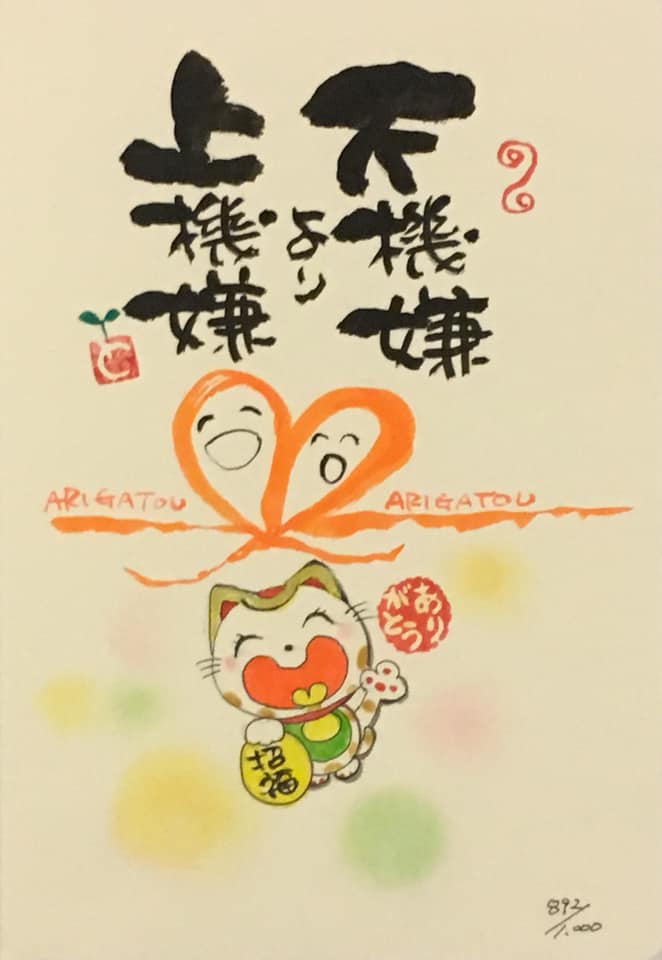 不機嫌
より
上機嫌
ARIGATOU
ARIGATOU
あり
がとう
招福
892/1.000